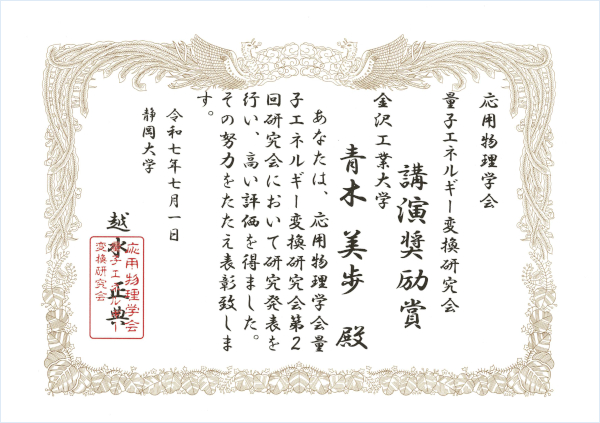 応用物理学会
量子エネルギー変換研究会
講演奨励賞
金沢工業大学
青木 美歩 殿
あなたは、応用物理学会量
子エネルギー変換研究会第2
回研究会において研究発表を
行い、高い評価を得ました。
その努力をたたえ表彰致しま
す。
令和七年七月一日
静岡大学
越水 正典
応用物理学会
量子エネルギー
変換研究会